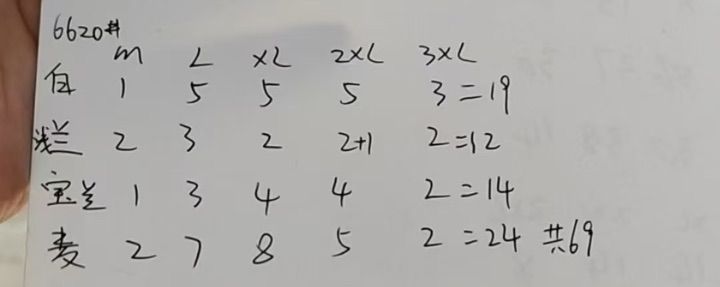 6620#
M L XL 2XL 3XL
白 1 5 5 5 3=19
浅兰 2 3 2 2+1 2=12
宝兰 1 3 4 4 2=14
麦 2 7 8 5 2=24 共69